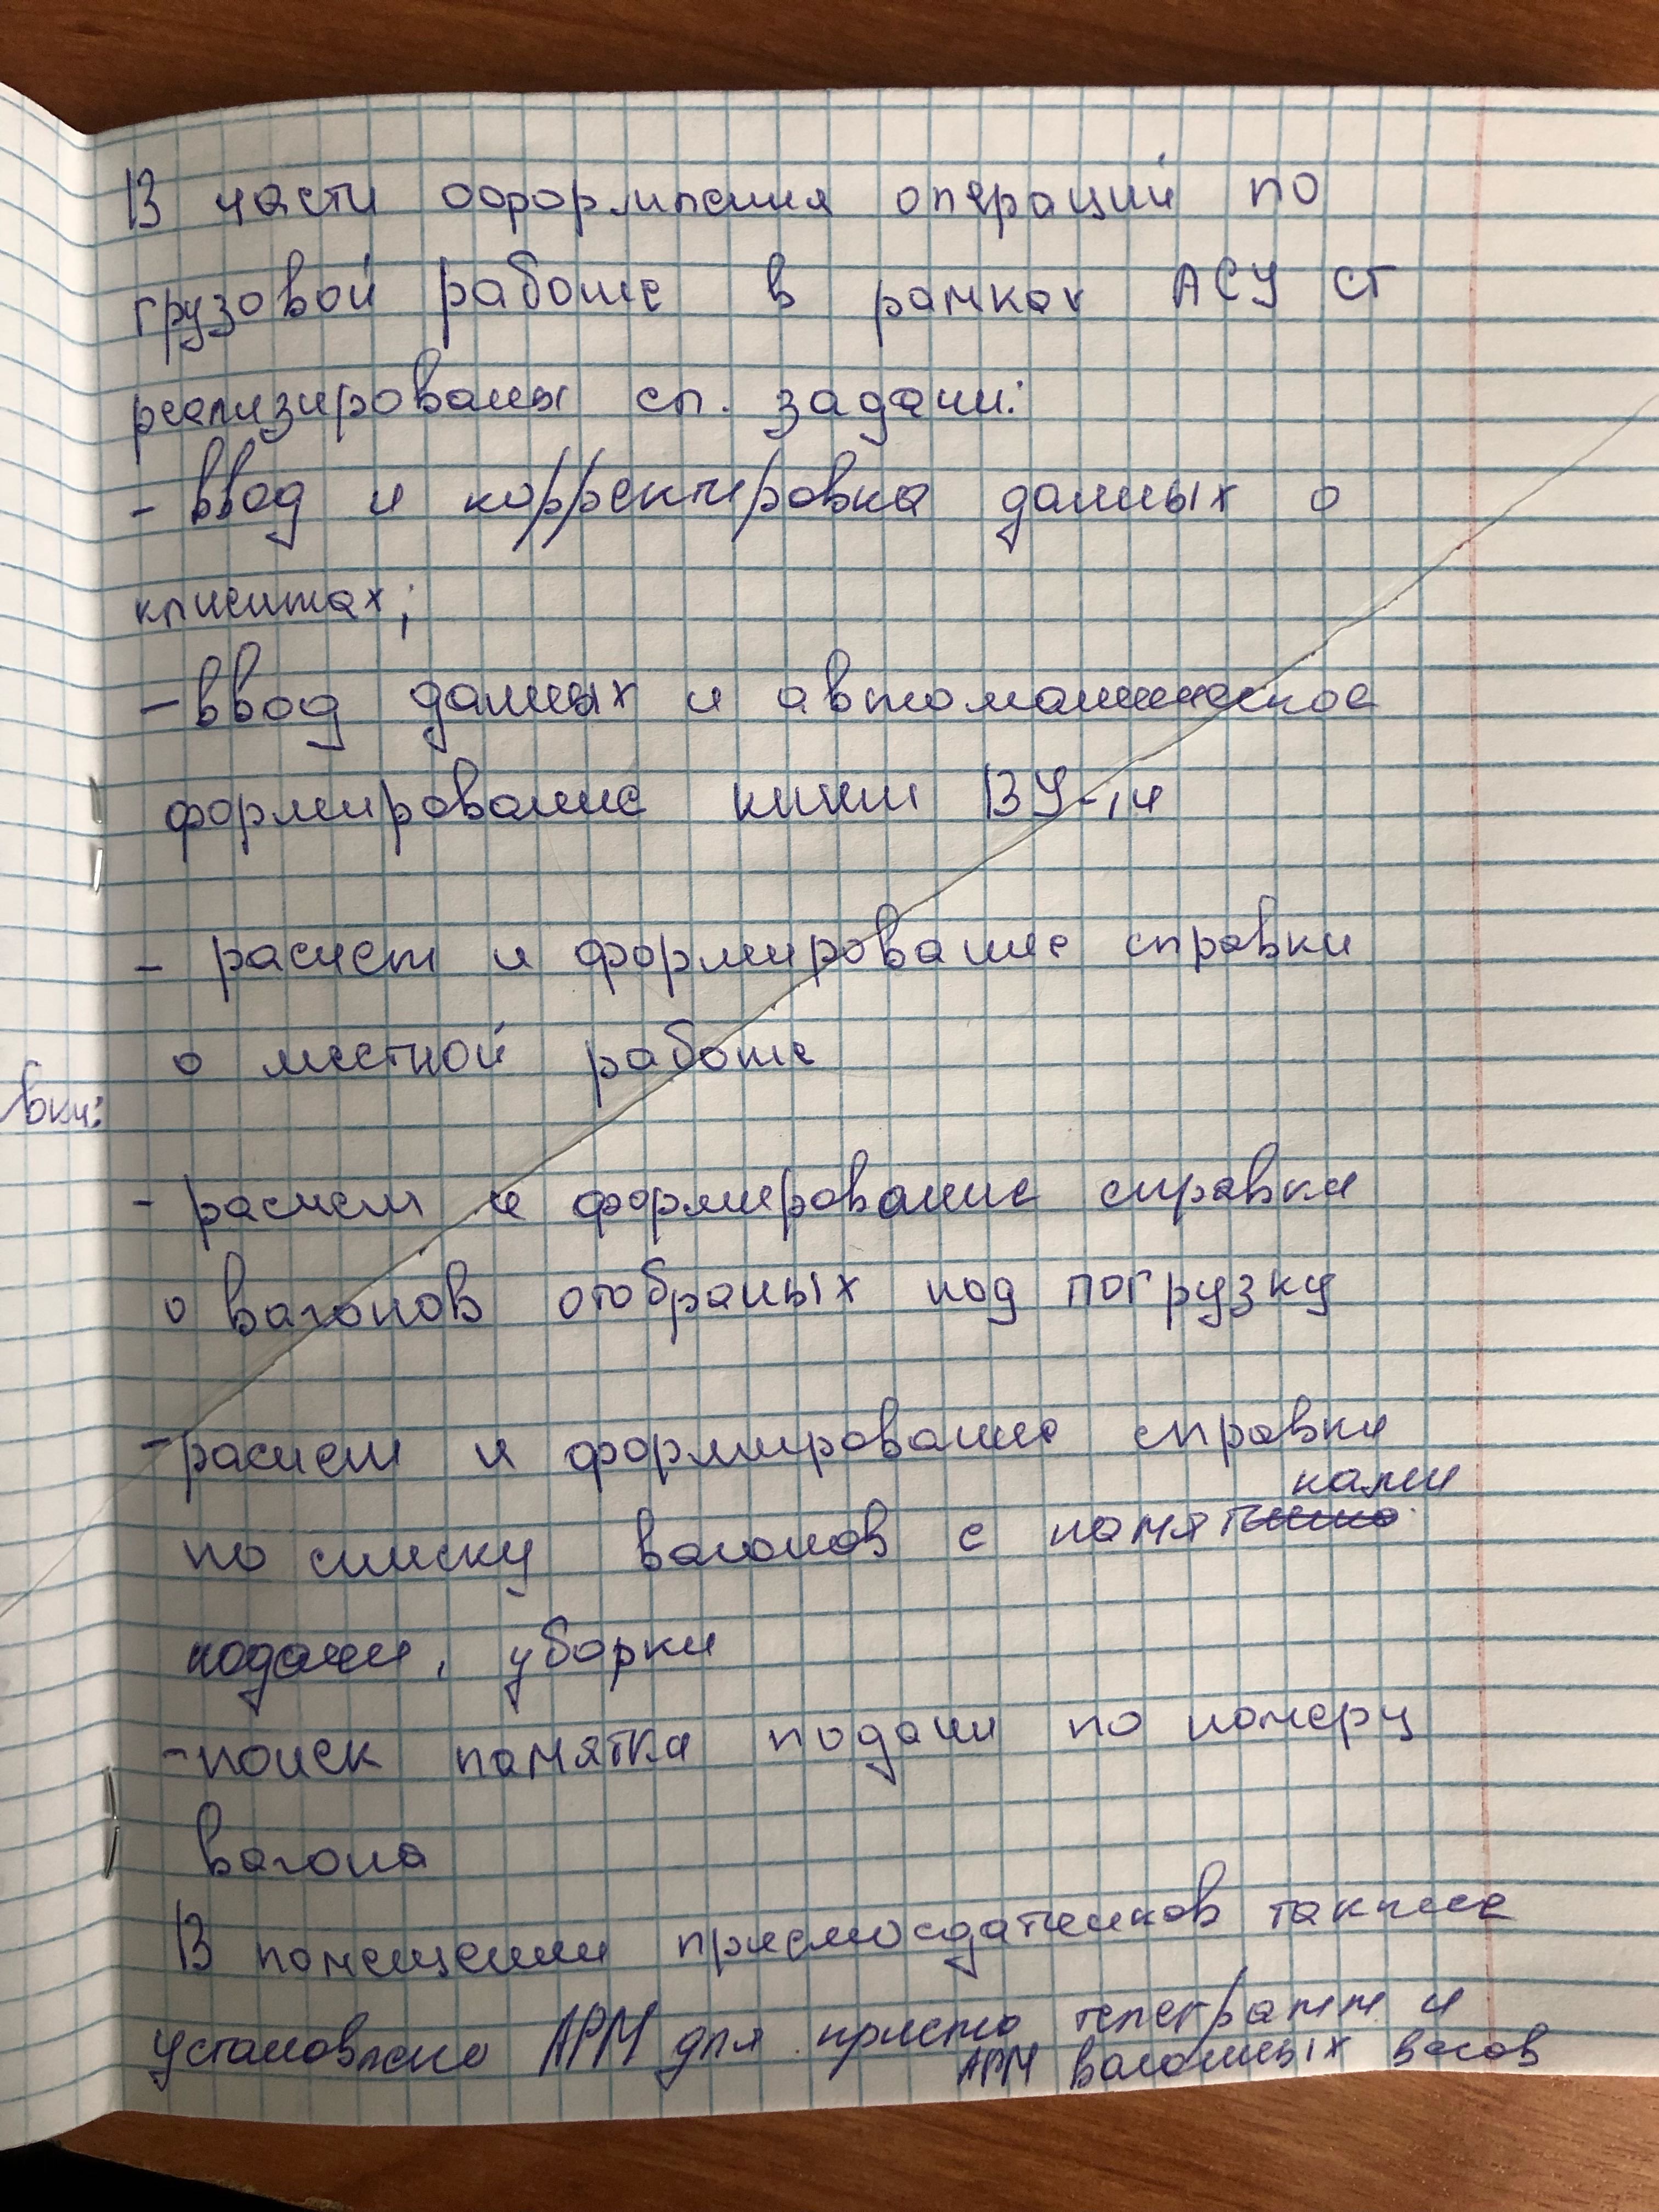 В части оформления операций по
грузовой работе в рамках АСУ СТ
реализированы сл. задачи:
- ввод и корректировка данных о
клиентах;
- ввод данных и автоматическое
формирование книги ВУ-14
- расчет и формирование справки
о местной работе
вки:
- расчет и формирование справки
о вагонов отобраных под погрузку
- расчет и формирование справки
ками
по списку вагонов с памят
подачи, уборки
- поиск памятка подачи по номеру
вагона
В помещении приемосдатчиков также
установлено АРМ для приема телеграмм и
АРМ вагонных весов